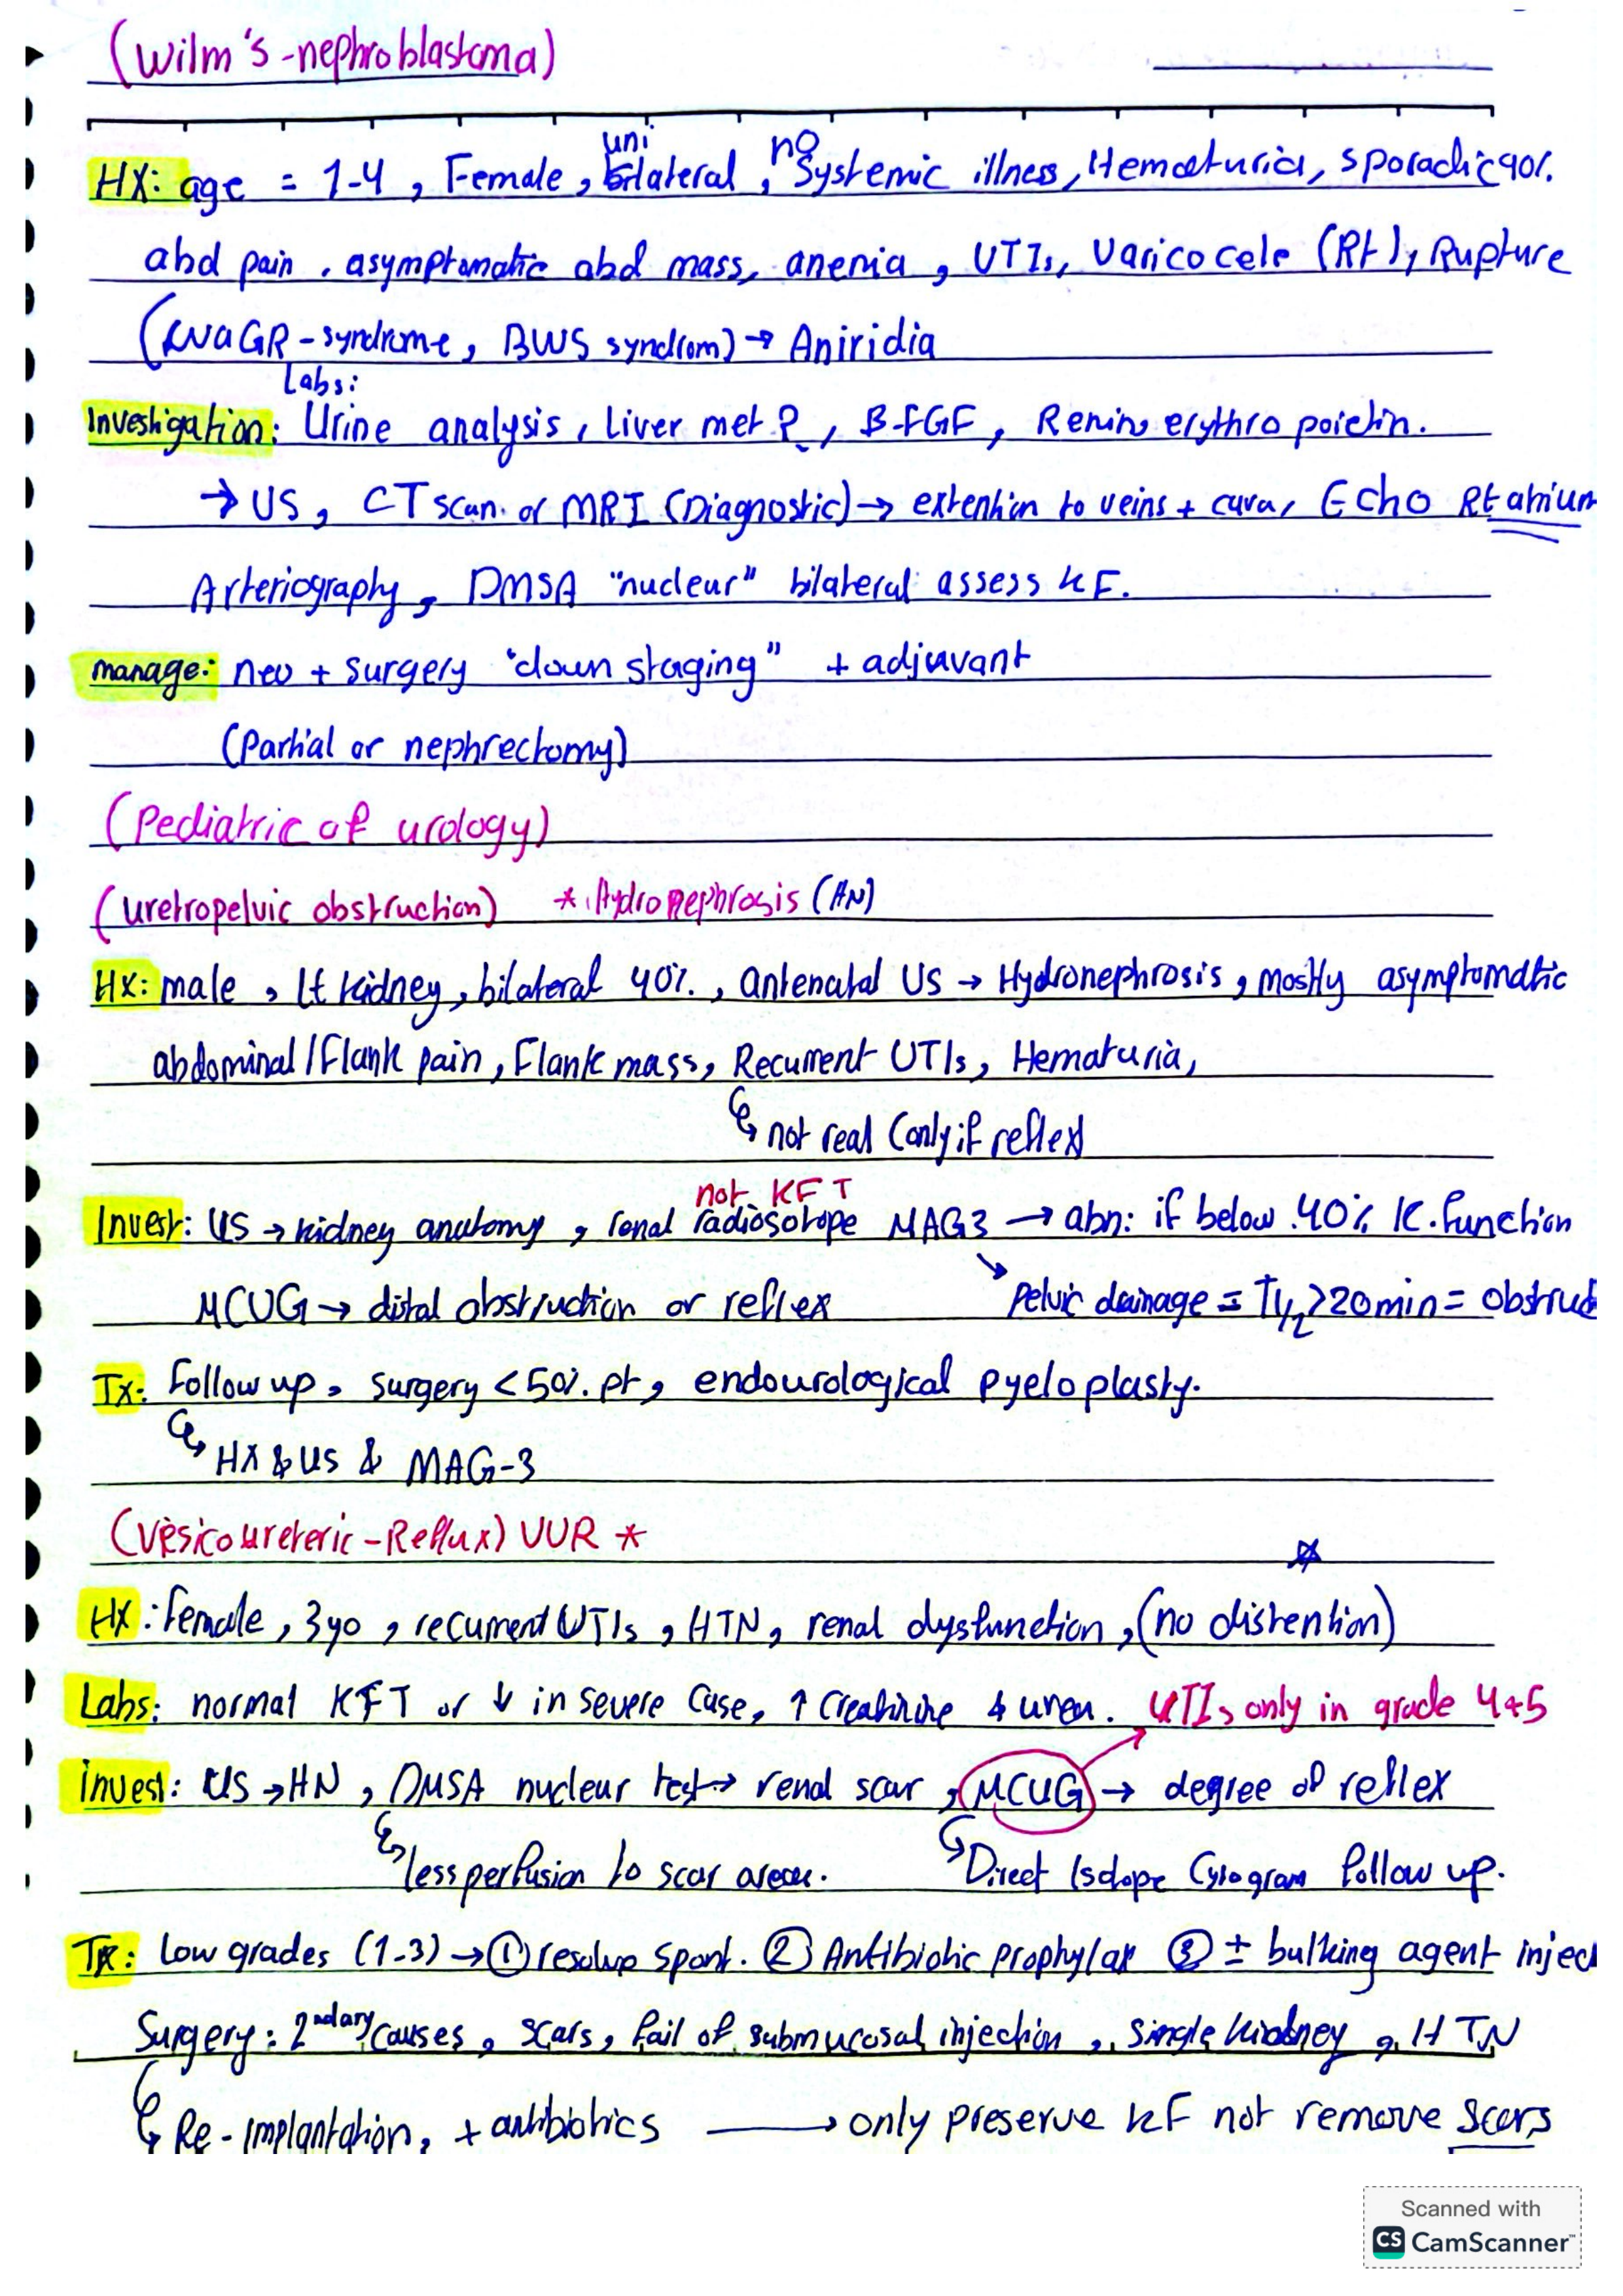 (Wilm's-nephroblastoma)
uni no
HX: age = 1-4, Female, bilateral, Systemic illness, Hematuria, sporadic 90%.
abd pain, asymptomatic abd mass, anemia, UTIs, Varicocele (Rt), Rupture
(WAGR-syndrome, BWS syndrom) → Aniridia
Labs:
Investigation: Urine analysis, Liver met?, B-FGF, Renin, erythropoietin.
→ US, CT scan. or MRI (Diagnostic) → extention to veins + cava, Echo Rt atrium
Arteriography, DMSA "nucleur" bilateral assess KF.
manage: neo + surgery "down staging" + adjuvant
(Partial or nephrectomy)
(Pediatric of urology)
(uretropelvic obstruction) * Hydronephrosis (HN)
HX: male, Lt kidney, bilateral 40%, antenatal US → Hydronephrosis, mostly asymptomatic
abdominal/Flank pain, Flank mass, Recurrent UTIs, Hematuria,
↳ not real (only if reflex)
not KFT
Invest: US → kidney anatomy, renal radiosotope MAG3 → abn: if below 40% K. function
MCUG → distal obstruction or reflex ↘ pelvic drainage = T1/2 >20min = obstruct
Tx: Follow up, surgery <50% pt, endourological pyeloplasty.
↳ HX & US & MAG-3
(Vesicoureteric-Reflux) VUR *
HX: Female, 3yo, recurrent UTIs, HTN, renal dysfunction, (no distention)
Labs: normal KFT or ↓ in severe case, ↑ creatinine & urea. UTIs only in grade 4+5
invest: US → HN, DMSA nuclear test → renal scar, MCUG → degree of reflex
↳ less perfusion to scar areas. ↳ Direct Isotope Cystogram follow up.
Tx: Low grades (1-3) → ① resolve spont. ② Antibiotic prophylax ③ ± bulking agent injec
Surgery: 2ndary causes, scars, fail of submucosal injection, single kidney, HTN
↳ Re-implantation, + antibiotics → only preserve KF not remove scars
Scanned with
CS CamScanner™